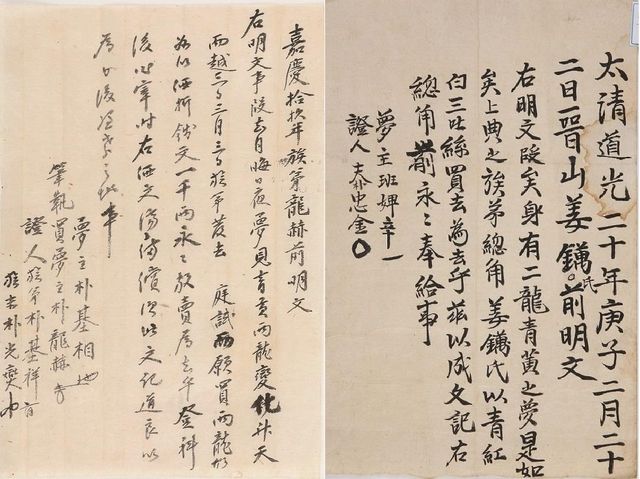 嘉慶拾玖年族弟龍赫前明文
右明文事段去月晦日夜夢見青黃兩龍變化升天
而越三月三 族弟發去 庭試而願買兩龍形
価折錢文一千兩永〻放賣爲去乎登科
後以 右価文 償 此文記道良以
爲日後憑考之地事
夢主朴基相
買夢主朴龍赫
證人族弟朴基祥
筆執族末朴光燮
太清道光二十年庚子二月二十
二日晋山姜鏋氏前明文
右明文段矣身有二龍青黃之夢是如
矣上典之族弟總角姜鏋氏以青紅
白三吐絲買去為去乎茲以成文記右
總角前永〻奉給事
夢主班婢辛一
證人夫朴忠金